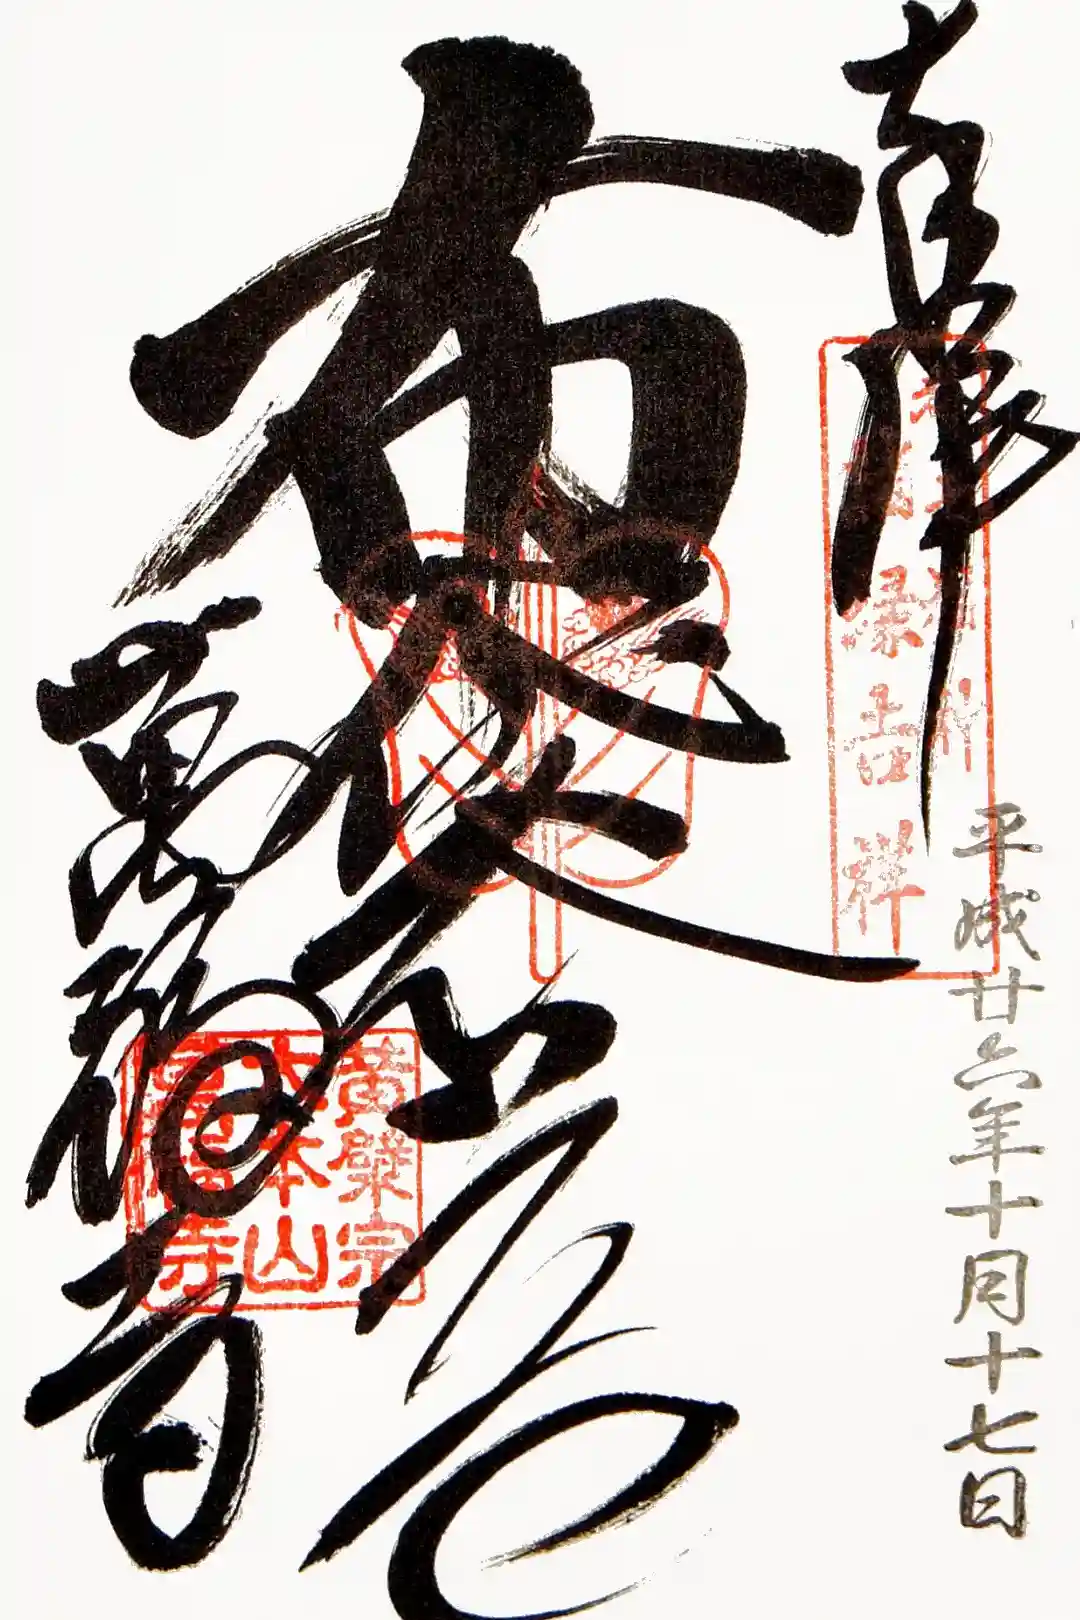 奉拝
平成廿六年十月十七日
布袋尊
萬福寺
黄檗宗
大本山
萬福寺